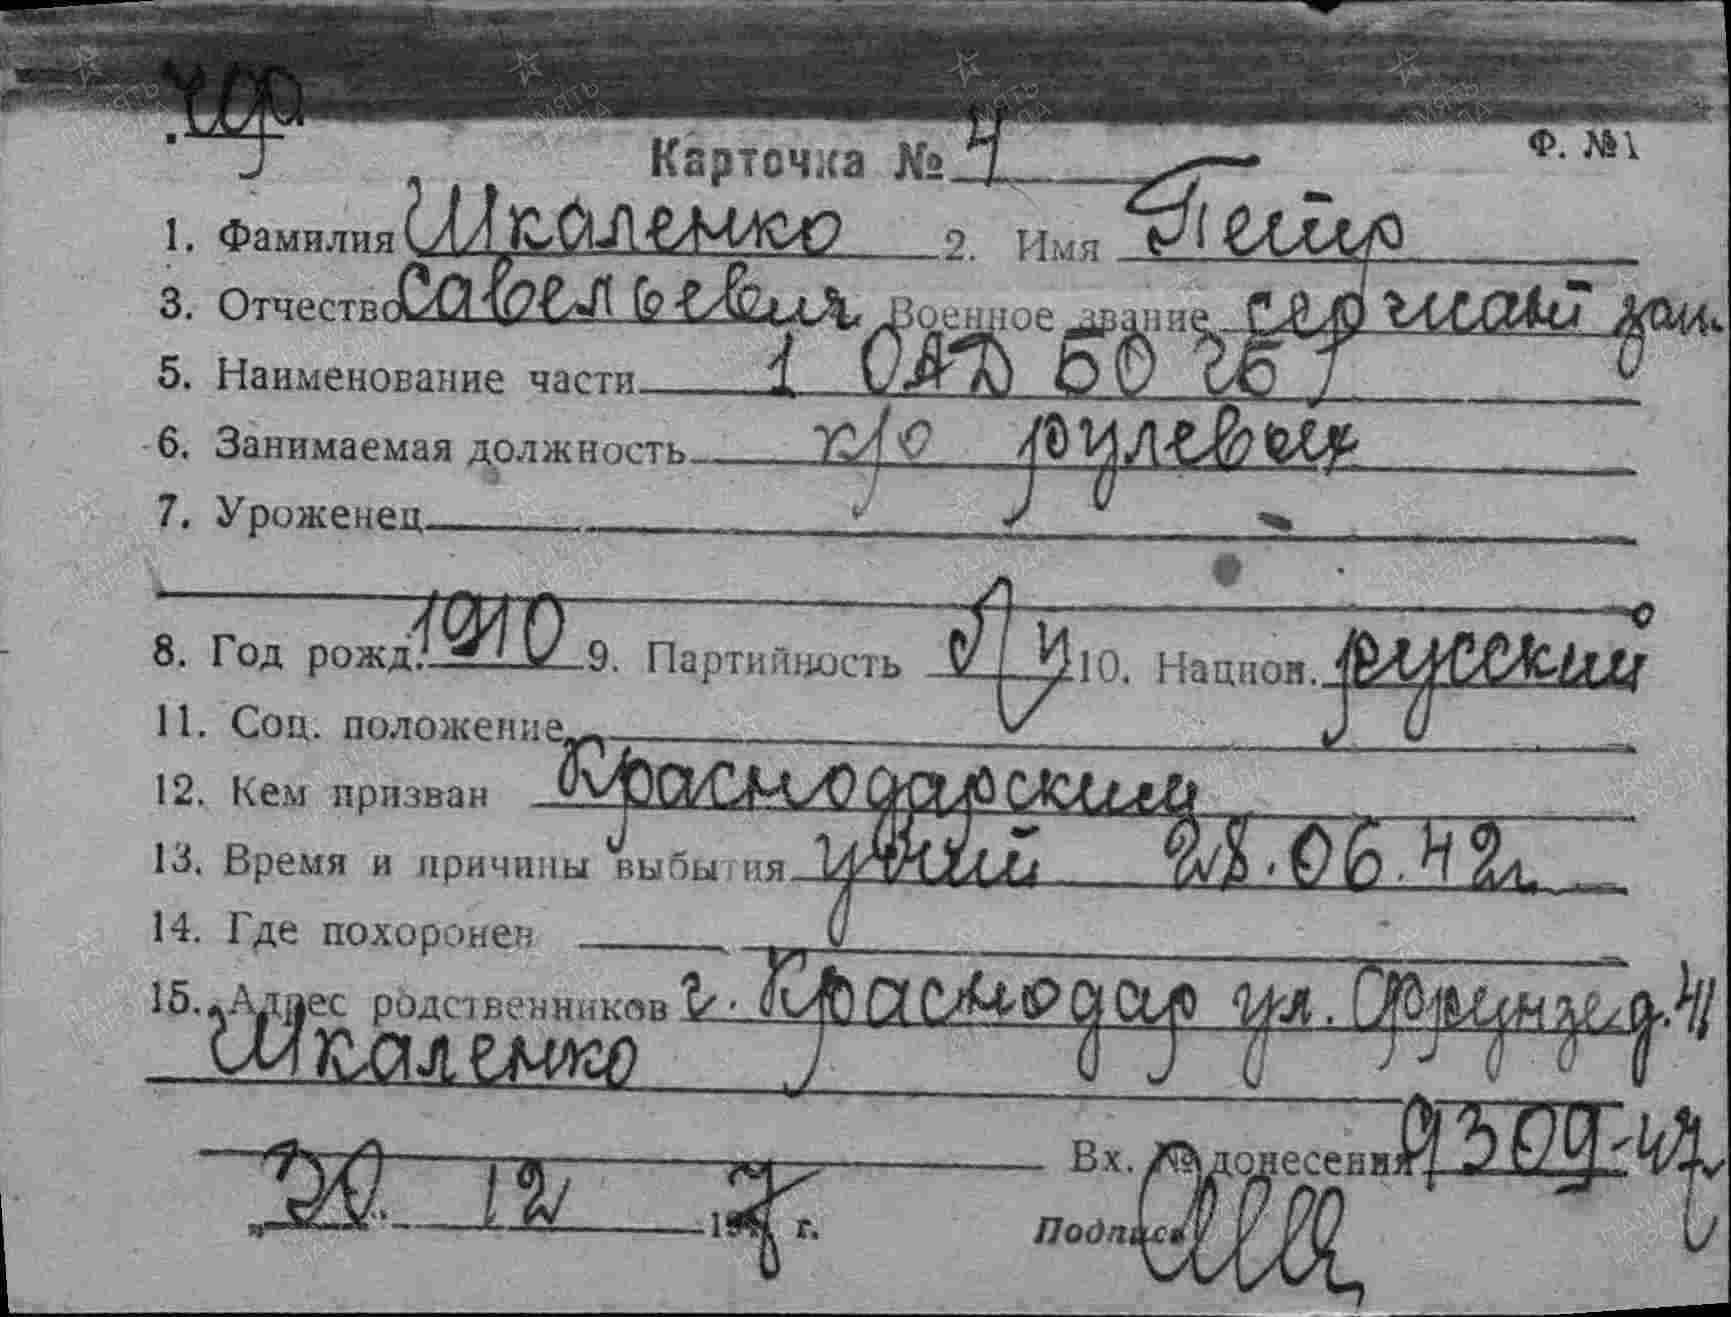 чф
Карточка № 4 Ф. №1
1. Фамилия Шкаленко 2. Имя Петр
3. Отчество Савельевич Военное звание сержант зап.
5. Наименование части 1 ОАД БО ЧФ
6. Занимаемая должность к/о рулевых
7. Уроженец -
8. Год рожд. 1910 9. Партийность 10. Национ. русский
11. Соц. положение
12. Кем призван Краснодарский
13. Время и причины выбытия убит 28.06.42г
14. Где похоронен
15. Адрес родственников г. Краснодар ул. Фрунзе д. 41
Шкаленко
Вх. № донесения 9309-47
„30. 12 1947 г. Подпись